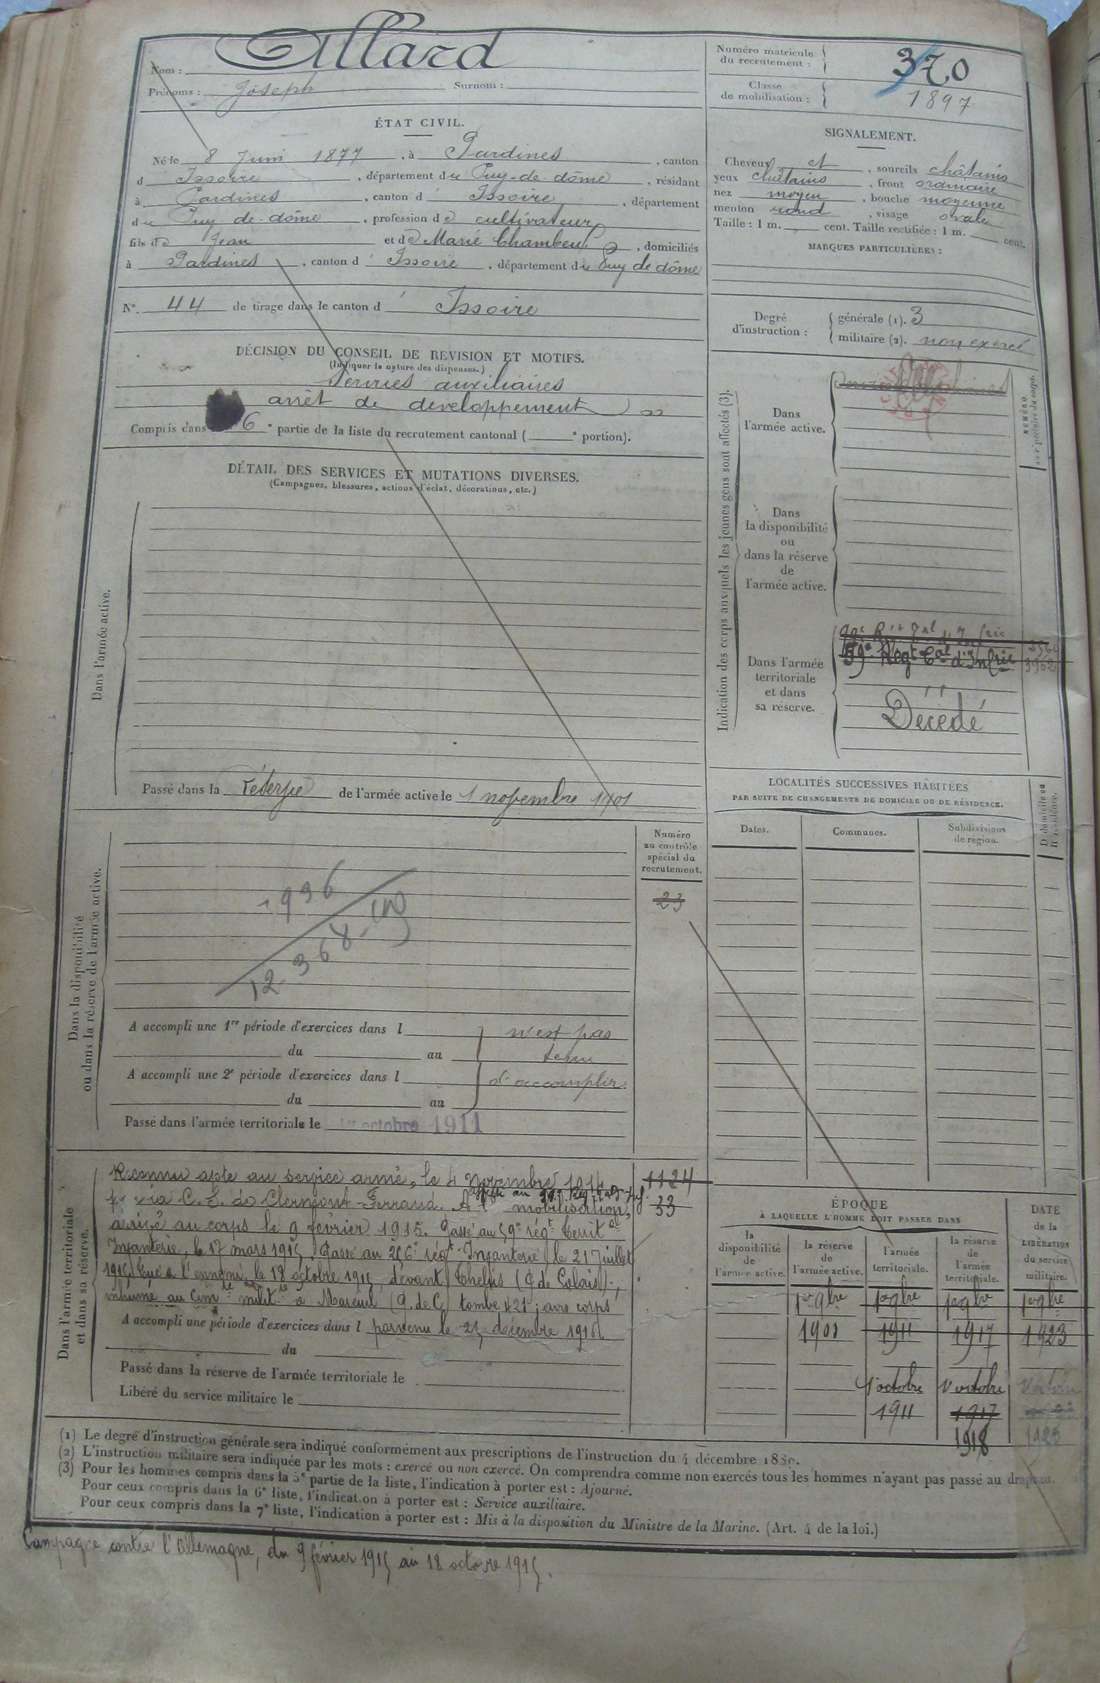 Nom : Allard
Prénoms : Joseph Surnom :
Numéro matricule du recrutement : 370
Classe de mobilisation : 1897
ÉTAT CIVIL.
Né le 8 Juin 1877, à Pardines, canton
d Issoire, département du Puy-de-dôme, résidant
à Pardines, canton d' Issoire, département
du Puy-de-dôme, profession de cultivateur
fils de Jean et de Marie Chambeu, domiciliés
à Pardines, canton d' Issoire, département du Puy de dôme
N° 44 de tirage dans le canton d' Issoire
SIGNALEMENT.
Cheveux et, sourcils châtains
yeux châtains, front ordinaire
nez moyen, bouche moyenne
menton rond, visage ovale
Taille : 1 m. cent. Taille rectifiée : 1 m. cent.
MARQUES PARTICULIÈRES :
Degré d'instruction : générale (1). 3
militaire (2). non exercé
DÉCISION DU CONSEIL DE REVISION ET MOTIFS.
(Indiquer la nature des dispenses.)
Services auxiliaires
arrêt de developpement
Compris dans 6e partie de la liste du recrutement cantonal ( e portion).
DÉTAIL DES SERVICES ET MUTATIONS DIVERSES.
(Campagnes, blessures, actions d'éclat, décorations, etc.)
Dans l'armée active.
Passé dans la réserve de l'armée active le 1 novembre 1901
Indication des corps auxquels les jeunes gens sont affectés (3).
Dans l'armée active.
Dans la disponibilité ou dans la réserve de l'armée active.
Dans l'armée territoriale et dans sa réserve.
59e Régt Tal d'Infrie
Décédé
LOCALITÉS SUCCESSIVES HABITÉES
PAR SUITE DE CHANGEMENTS DE DOMICILE OU DE RÉSIDENCE.
Dates. Communes. Subdivisions de région. D domicile ou R résidence.
Numéro au contrôle spécial du recrutement.
23
Dans la disponibilité ou dans la réserve de l'armée active.
1936
A accompli une 1re période d'exercices dans l
n'est pas
du au
tenu
A accompli une 2e période d'exercices dans l
d'accomplir
du au
Passé dans l'armée territoriale le octobre 1911
Dans l'armée territoriale et dans sa réserve.
Reconnu apte au service armé, le 4 novembre 1914 1124
de Clermont-Ferrand. mobilisation, 33
arrivé au corps le 9 février 1915. Passé au 59e régt territal
Infanterie, le 17 mars 1915. Passé au 266e régt Infanterie le 21 juillet
1915. Tué à l'ennemi, le 18 octobre 1915, devant Thelus (P. de Calais),
inhumé au Cime milite à Mareuil (P. de C.) tombe 421 - avis corps
A accompli une période d'exercices dans l parvenu le 27 décembre 1916
du
Passé dans la réserve de l'armée territoriale le
Libéré du service militaire le
ÉPOQUE
À LAQUELLE L'HOMME DOIT PASSER DANS
la disponibilité de l'armée active. la réserve de l'armée active. l'armée territoriale. la réserve de l'armée territoriale.
DATE de la LIBÉRATION du service militaire.
1er 9bre 1er 9bre 1er 9bre 1er 9bre
1901 1911 1917 1923
1 octobre 1 octobre
1911 1917
1918
(1) Le degré d'instruction générale sera indiqué conformément aux prescriptions de l'instruction du 4 décembre 1889.
(2) L'instruction militaire sera indiquée par les mots : exercé ou non exercé. On comprendra comme non exercés tous les hommes n'ayant pas passé au drapeau.
(3) Pour les hommes compris dans la 5e partie de la liste, l'indication à porter est : Ajourné.
Pour ceux compris dans la 6e liste, l'indication à porter est : Service auxiliaire.
Pour ceux compris dans la 7e liste, l'indication à porter est : Mis à la disposition du Ministre de la Marine. (Art. 4 de la loi.)
Campagne contre l'Allemagne, du 9 février 1915 au 18 octobre 1915.